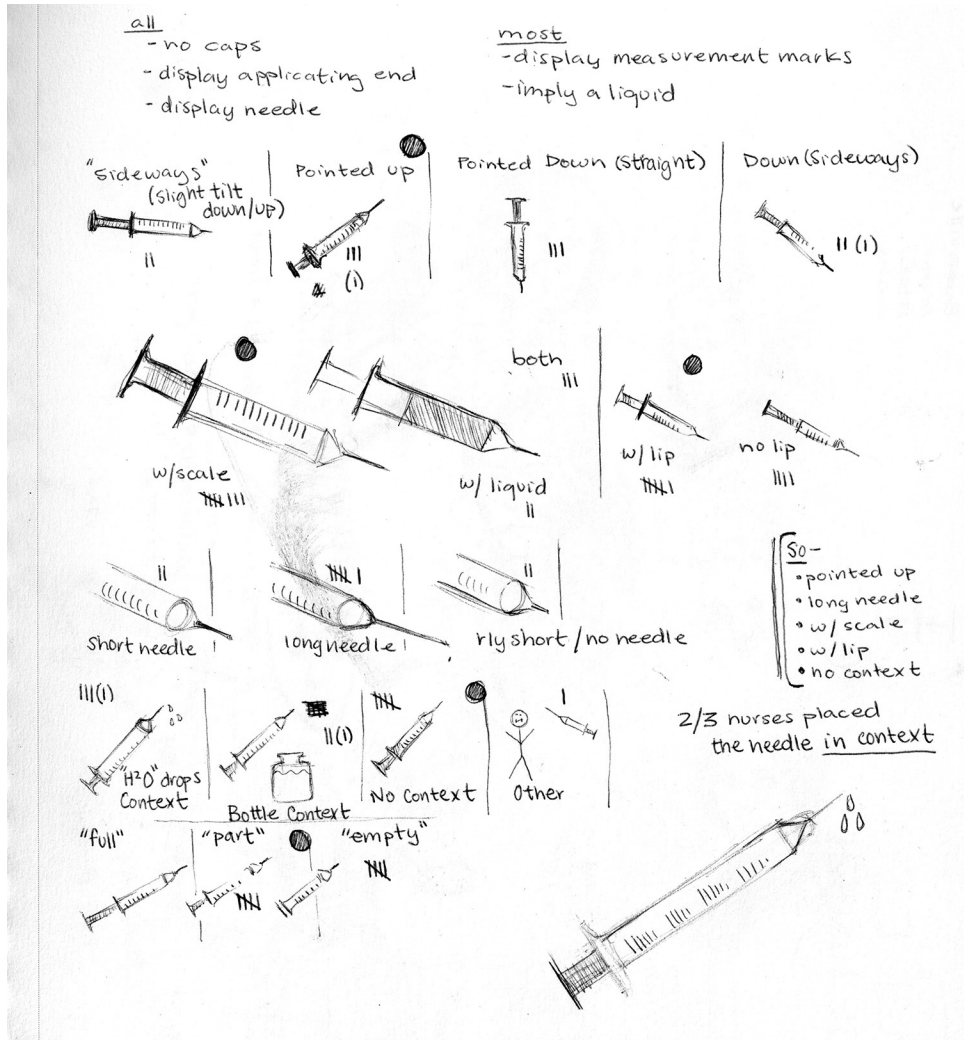 all
-no caps
- display applicating end
- display needle
most
-display measurement marks
-imply a liquid
"sideways"
(slight tilt
down/up)
Pointed up
Pointed Down (straight)
Down (sideways)
||
|||
(1)
|||
|| (1)
both
|||
w/scale
𝍸 |||
w/ liquid
||
w/ lip
𝍸 |
no lip
||||
||
short needle
𝍸 |
long needle
||
rly short / no needle
So-
• pointed up
• long needle
• w/ scale
• w/ lip
• no context
|||(1)
"H²O" drops
Context
||(1)
Bottle Context
𝍸
No Context
|
Other
2/3 nurses placed
the needle in context
"full"
"part"
𝍸
"empty"
𝍸